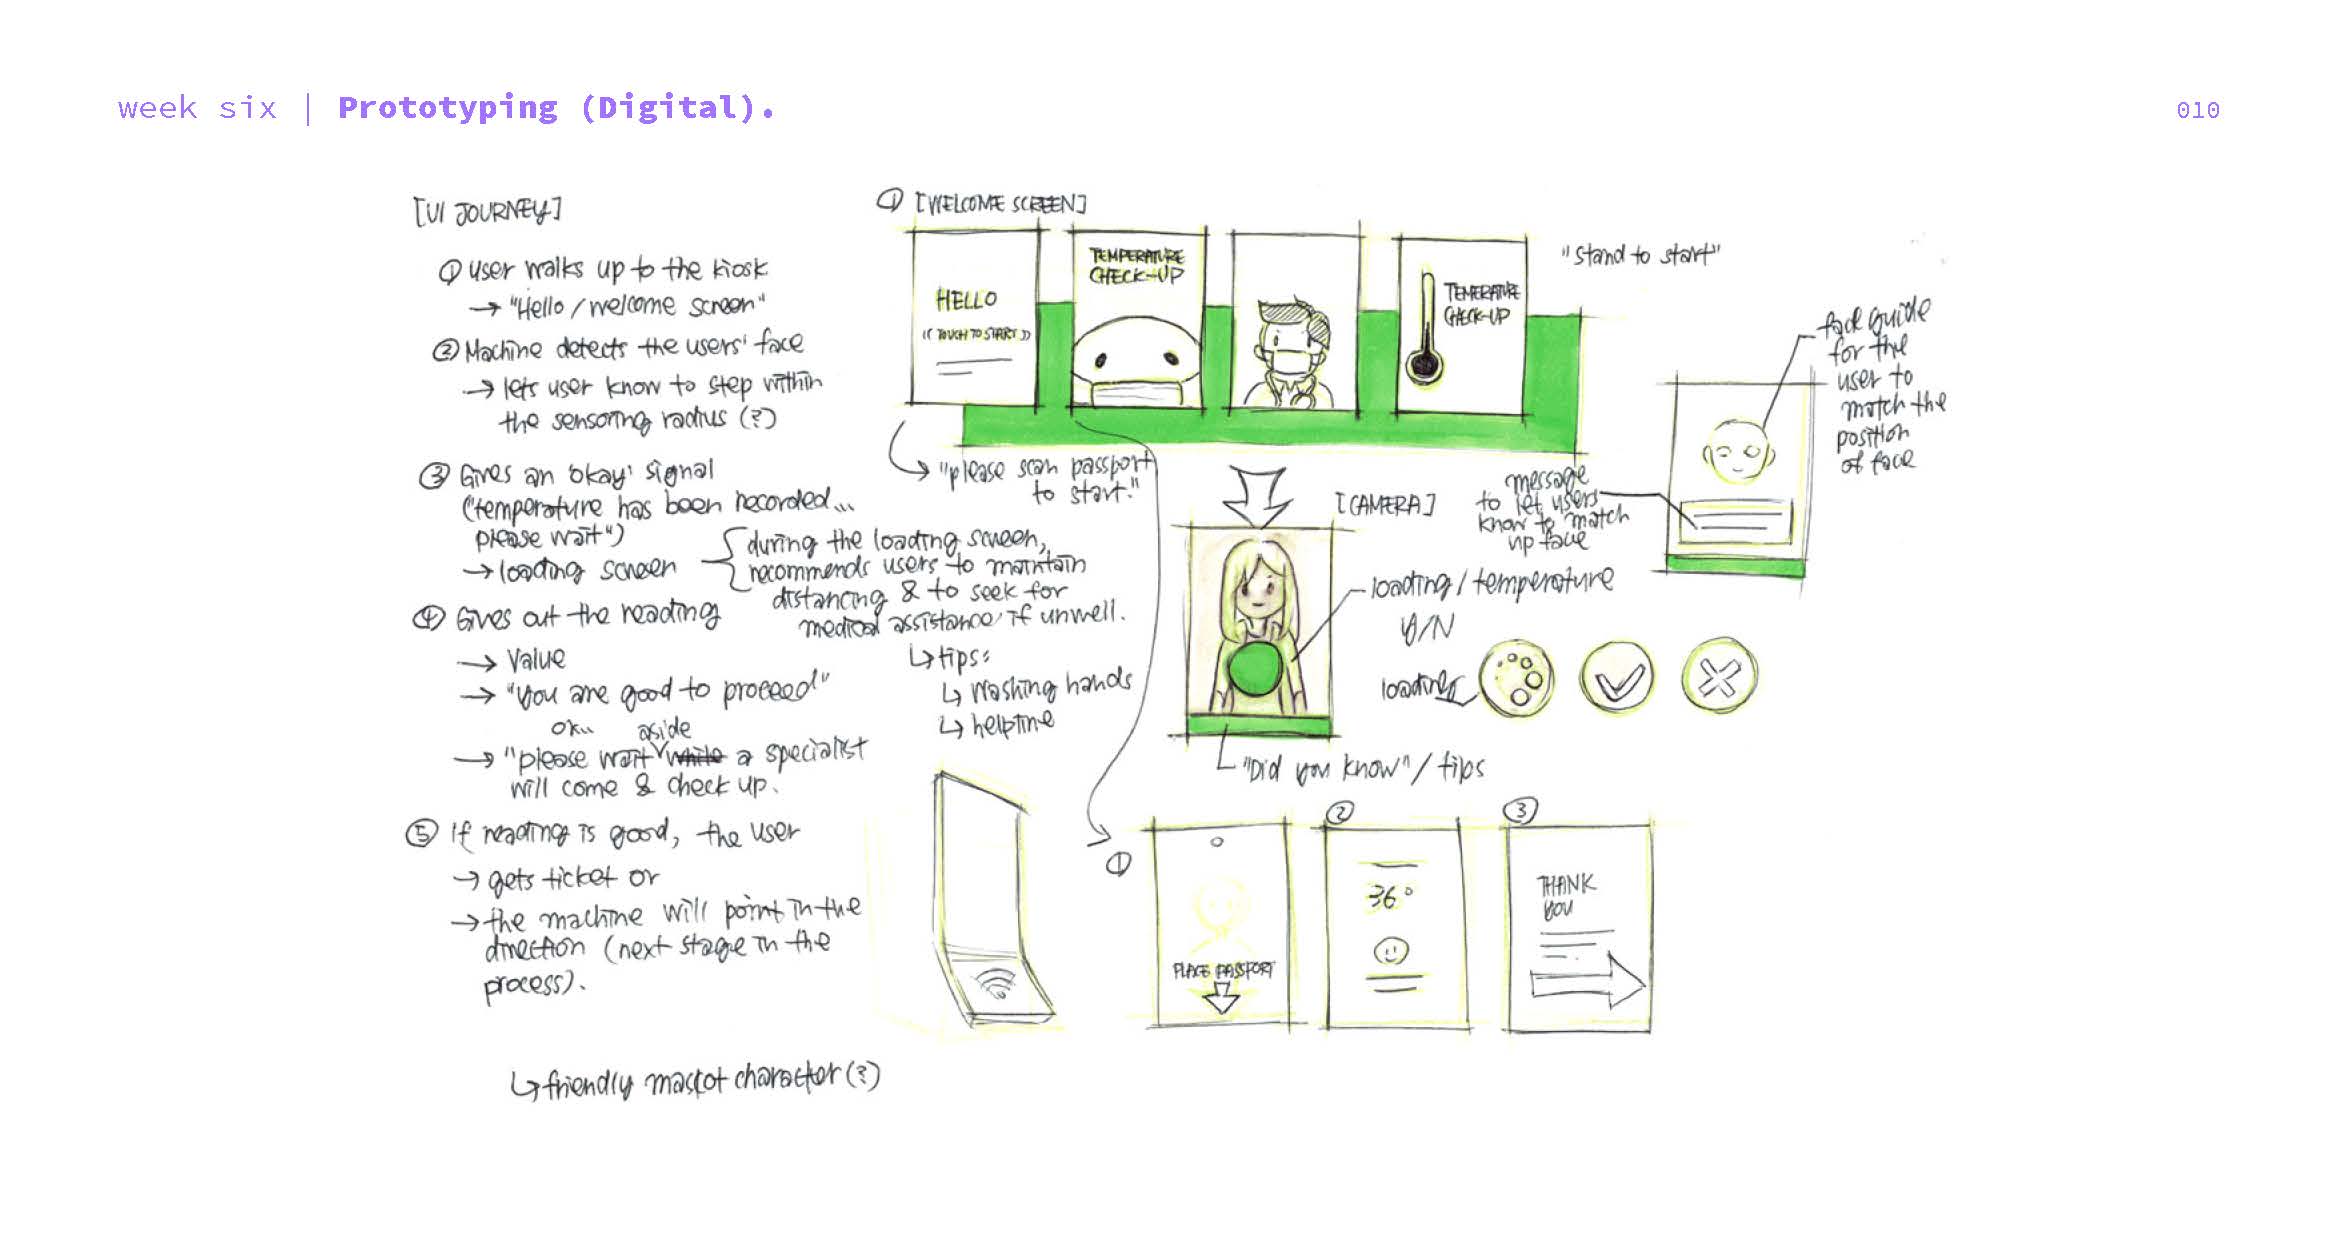 week six | Prototyping (Digital).
010
[UI JOURNEY]
① user walks up to the kiosk
→ "Hello/welcome screen"
② Machine detects the users' face
→ lets user know to step within
the sensoring radius (?)
③ Gives an 'okay' signal
("temperature has been recorded...
please wait")
→ loading screen
during the loading screen,
recommends users to maintain
distancing & to seek for
medical assistance if unwell.
↳ tips:
↳ washing hands
↳ helpline
④ Gives out the reading
→ Value
→ "you are good to proceed"
OK.. aside
→ "please wait while a specialist
will come & check up.
⑤ If reading is good, the user
→ gets ticket or
→ the machine will point in the
direction (next stage in the
process).
↳ friendly mascot character (?)
① [WELCOME SCREEN]
HELLO
(( TOUCH TO START ))
TEMPERATURE
CHECK-UP
TEMPERATURE
CHECK-UP
"Stand to start"
"please scan passport
to start."
[CAMERA]
loading / temperature
Y/N
loading
"Did you know" / tips
message
to let users
know to match
up face
face guide
for the
user to
match the
position
of face
①
PLACE PASSPORT
②
36°
③
THANK
YOU